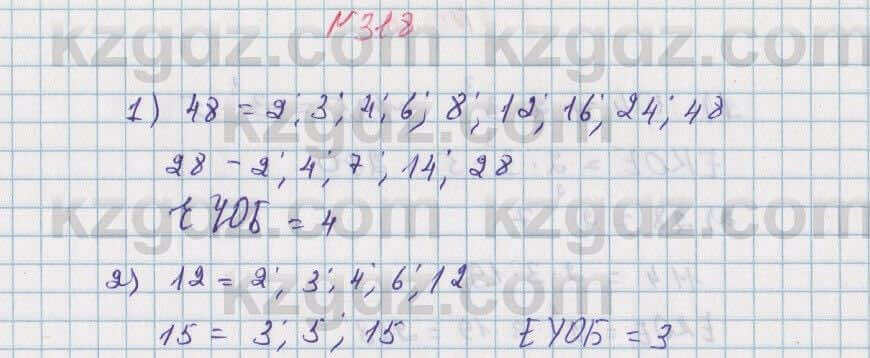 N318
1) 48 = 2; 3; 4; 6; 8; 12; 16; 24; 48
28 - 2; 4; 7; 14; 28
ЕҮОБ = 4
2) 12 = 2; 3; 4; 6; 12
15 = 3; 5; 15 ЕҮОБ = 3
kzgdz.com kzgdz.com
kzgdz.com kzgdz.com
kzgdz.com kzgdz.com
kzgdz.com kzgdz.com